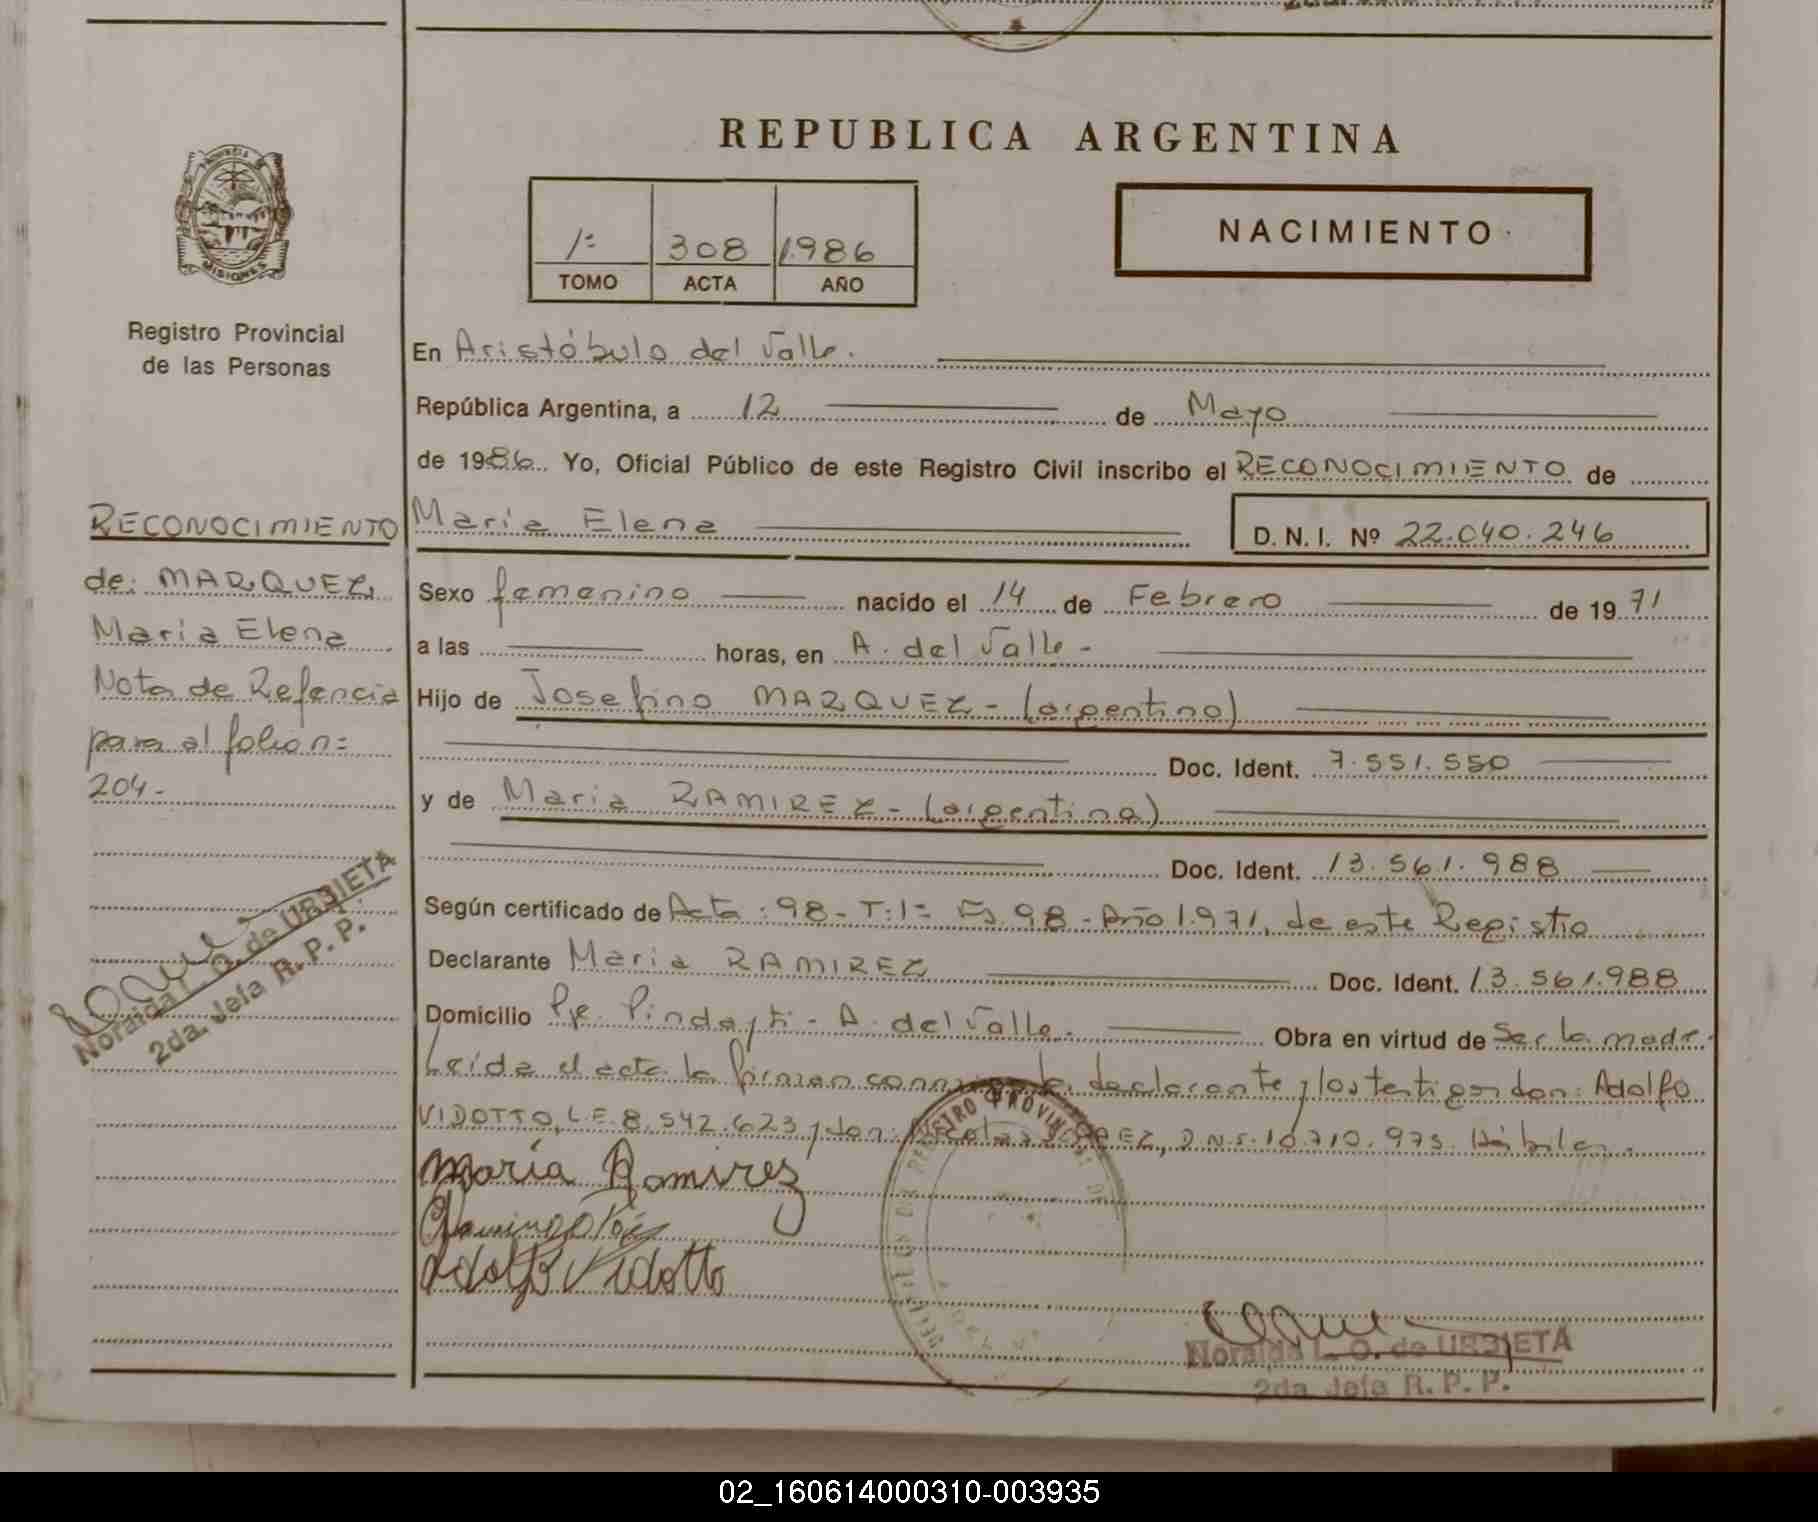 REPUBLICA ARGENTINA
PROVINCIA DE
MISIONES
Registro Provincial
de las Personas
1º 308 1986
TOMO ACTA AÑO
NACIMIENTO
En Aristóbulo del Valle.
República Argentina, a 12 de Mayo
de 1986. Yo, Oficial Público de este Registro Civil inscribo el RECONOCIMIENTO de
María Elena D. N. I. Nº 22.040.246
Sexo femenino nacido el 14 de Febrero de 1971
a las horas, en A. del Valle -
Hijo de Josefino MARQUEZ - (argentino)
Doc. Ident. 7.551.550
y de Maria RAMIREZ - (argentina)
Doc. Ident. 13.561.988
Según certificado de Acta: 98 - T: 1º Fs 98 - Año 1.971, de este Registro
Declarante Maria RAMIREZ Doc. Ident. 13.561.988
Domicilio Pje. Pindayti - A. del Valle. Obra en virtud de Ser la madre.
Leída el acta la firman conmigo la declarante y los testigos don: Adolfo
VIDOTTO, L.E. 8.542.623 y don: LOPEZ, D.N.I. 10.710.973. Hábiles.
María Ramirez
Adolfo Vidotto
Noraida L. O. de URBIETA
2da. Jefa R. P. P.
RECONOCIMIENTO
de: MARQUEZ,
María Elena
Nota de Refencia
para al folio nº
204 -
Noraida L. O. de URBIETA
2da. Jefa R. P. P.
REGISTRO PROVINCIAL DE
02_160614000310-003935